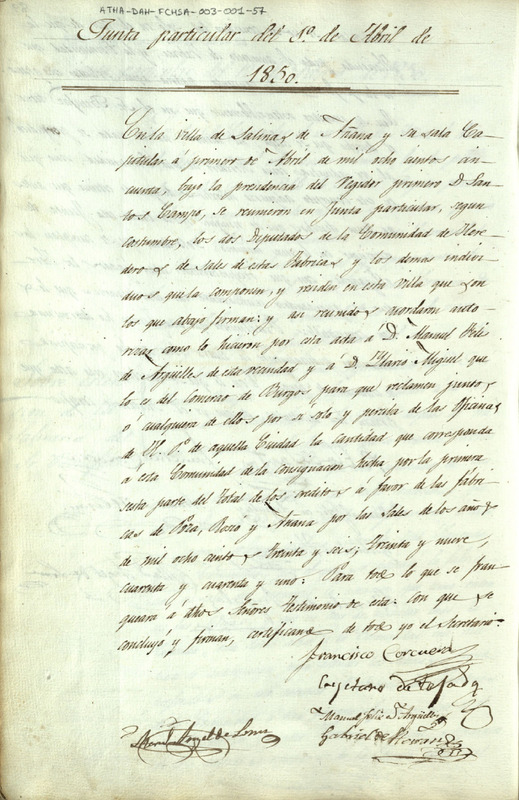 ATHA-DAH-FCHSA-003-001-57
Junta particular del 1º de Abril de
1850.
En la villa de Salinas de Añana y su sala Ca-
pitular a primero de Abril de mil ocho cientos cin-
cuenta, bajo la presidencia del Regidor primero D. San-
tos Campo, se reunieron en Junta particular, segun
costumbre, los dos Diputados de la Comunidad de Here-
deros de Sales de estas Fabricas y los demas indivi-
duos que la componen, y residen en esta villa que son
los que abajo firman: y asi reunidos acordaron auto-
rizar como lo hicieron por esta acta á D. Manuel Feliz
de Argüelles de esta vecindad y á D. Ylario Miguel que
lo es del Comercio de Burgos para que reclamen juntos
o cualquiera de ellos por si solo y perciba de las oficinas
de H. Pª de aquella Ciudad la cantidad que corresponda
a esta Comunidad de la consignacion hecha por la primera
sesta parte del total de los creditos á favor de las fábri-
cas de Poza, Rosío y Añana por las Sales de los años
de mil ocho cientos treinta y seis; treinta y nueve,
cuarenta y cuarenta y uno: Para todo lo que se fran-
queara á dhos Señores testimonio de esta: Con que se
concluyó y firman, certificando de todo yo el Secretario.
Francisco Corcuera
Cayetano de Tejada
Manuel Feliz de Argüelles
Gabriel de